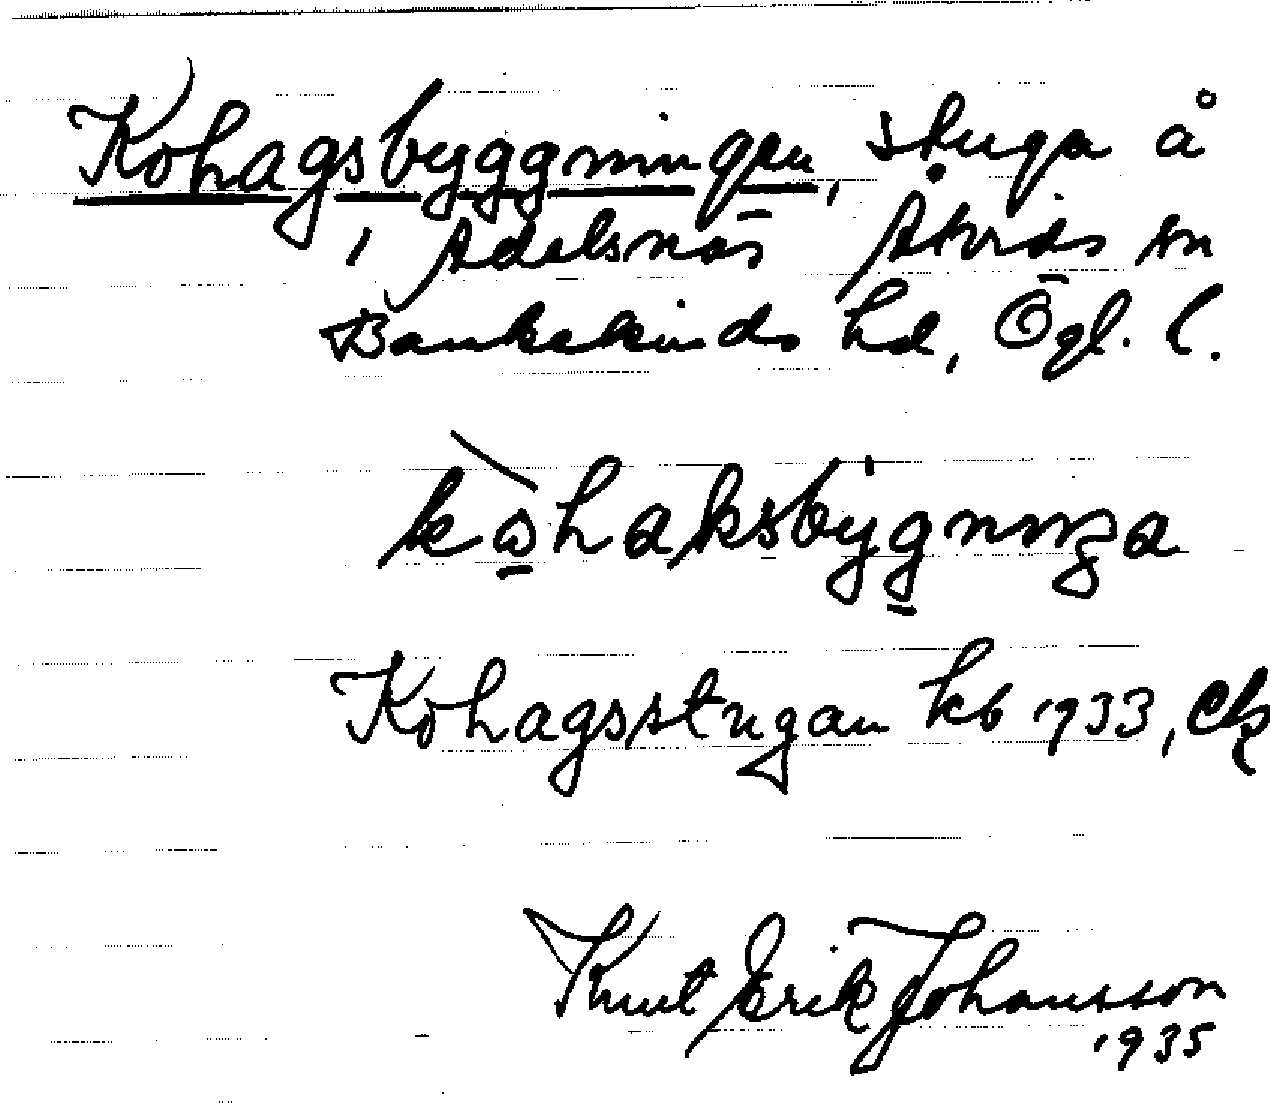 Kohagsbyggningen, stuga å
, Adelsnäs Åtvids sn
Bankekinds hd, Ögl. l.
kωhaksbygniŋa
Kohagsstugan kb 1933, ck
Knut Erik Johansson
1935